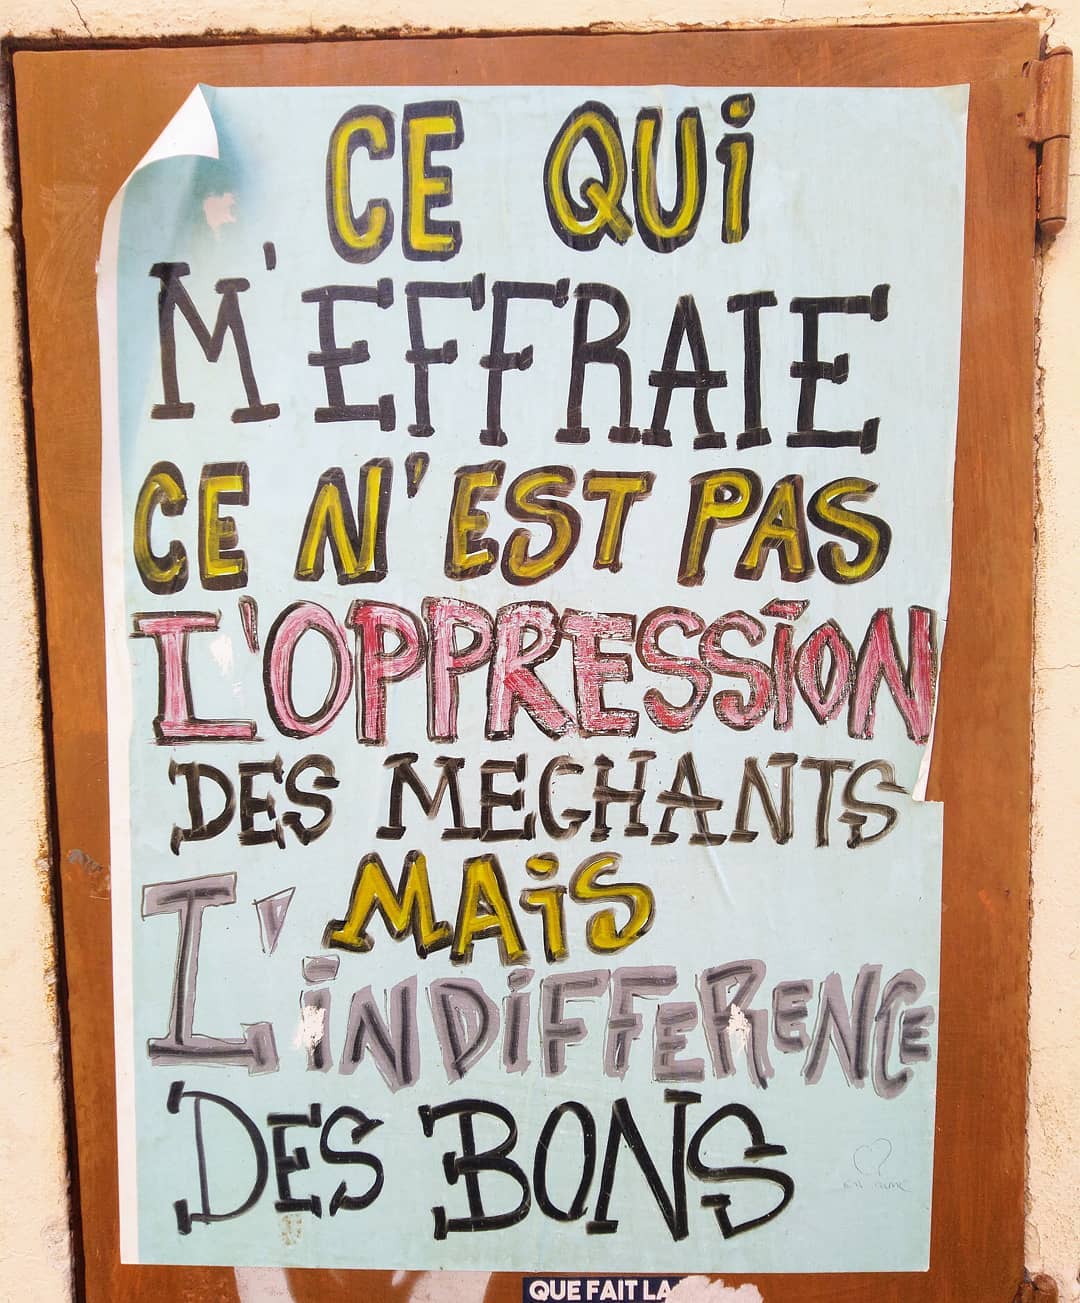 CE QUI
M'EFFRAIE
CE N'EST PAS
L'OPPRESSION
DES MECHANTS
MAIS
L'INDIFFERENCE
DES BONS
QUE FAIT LA